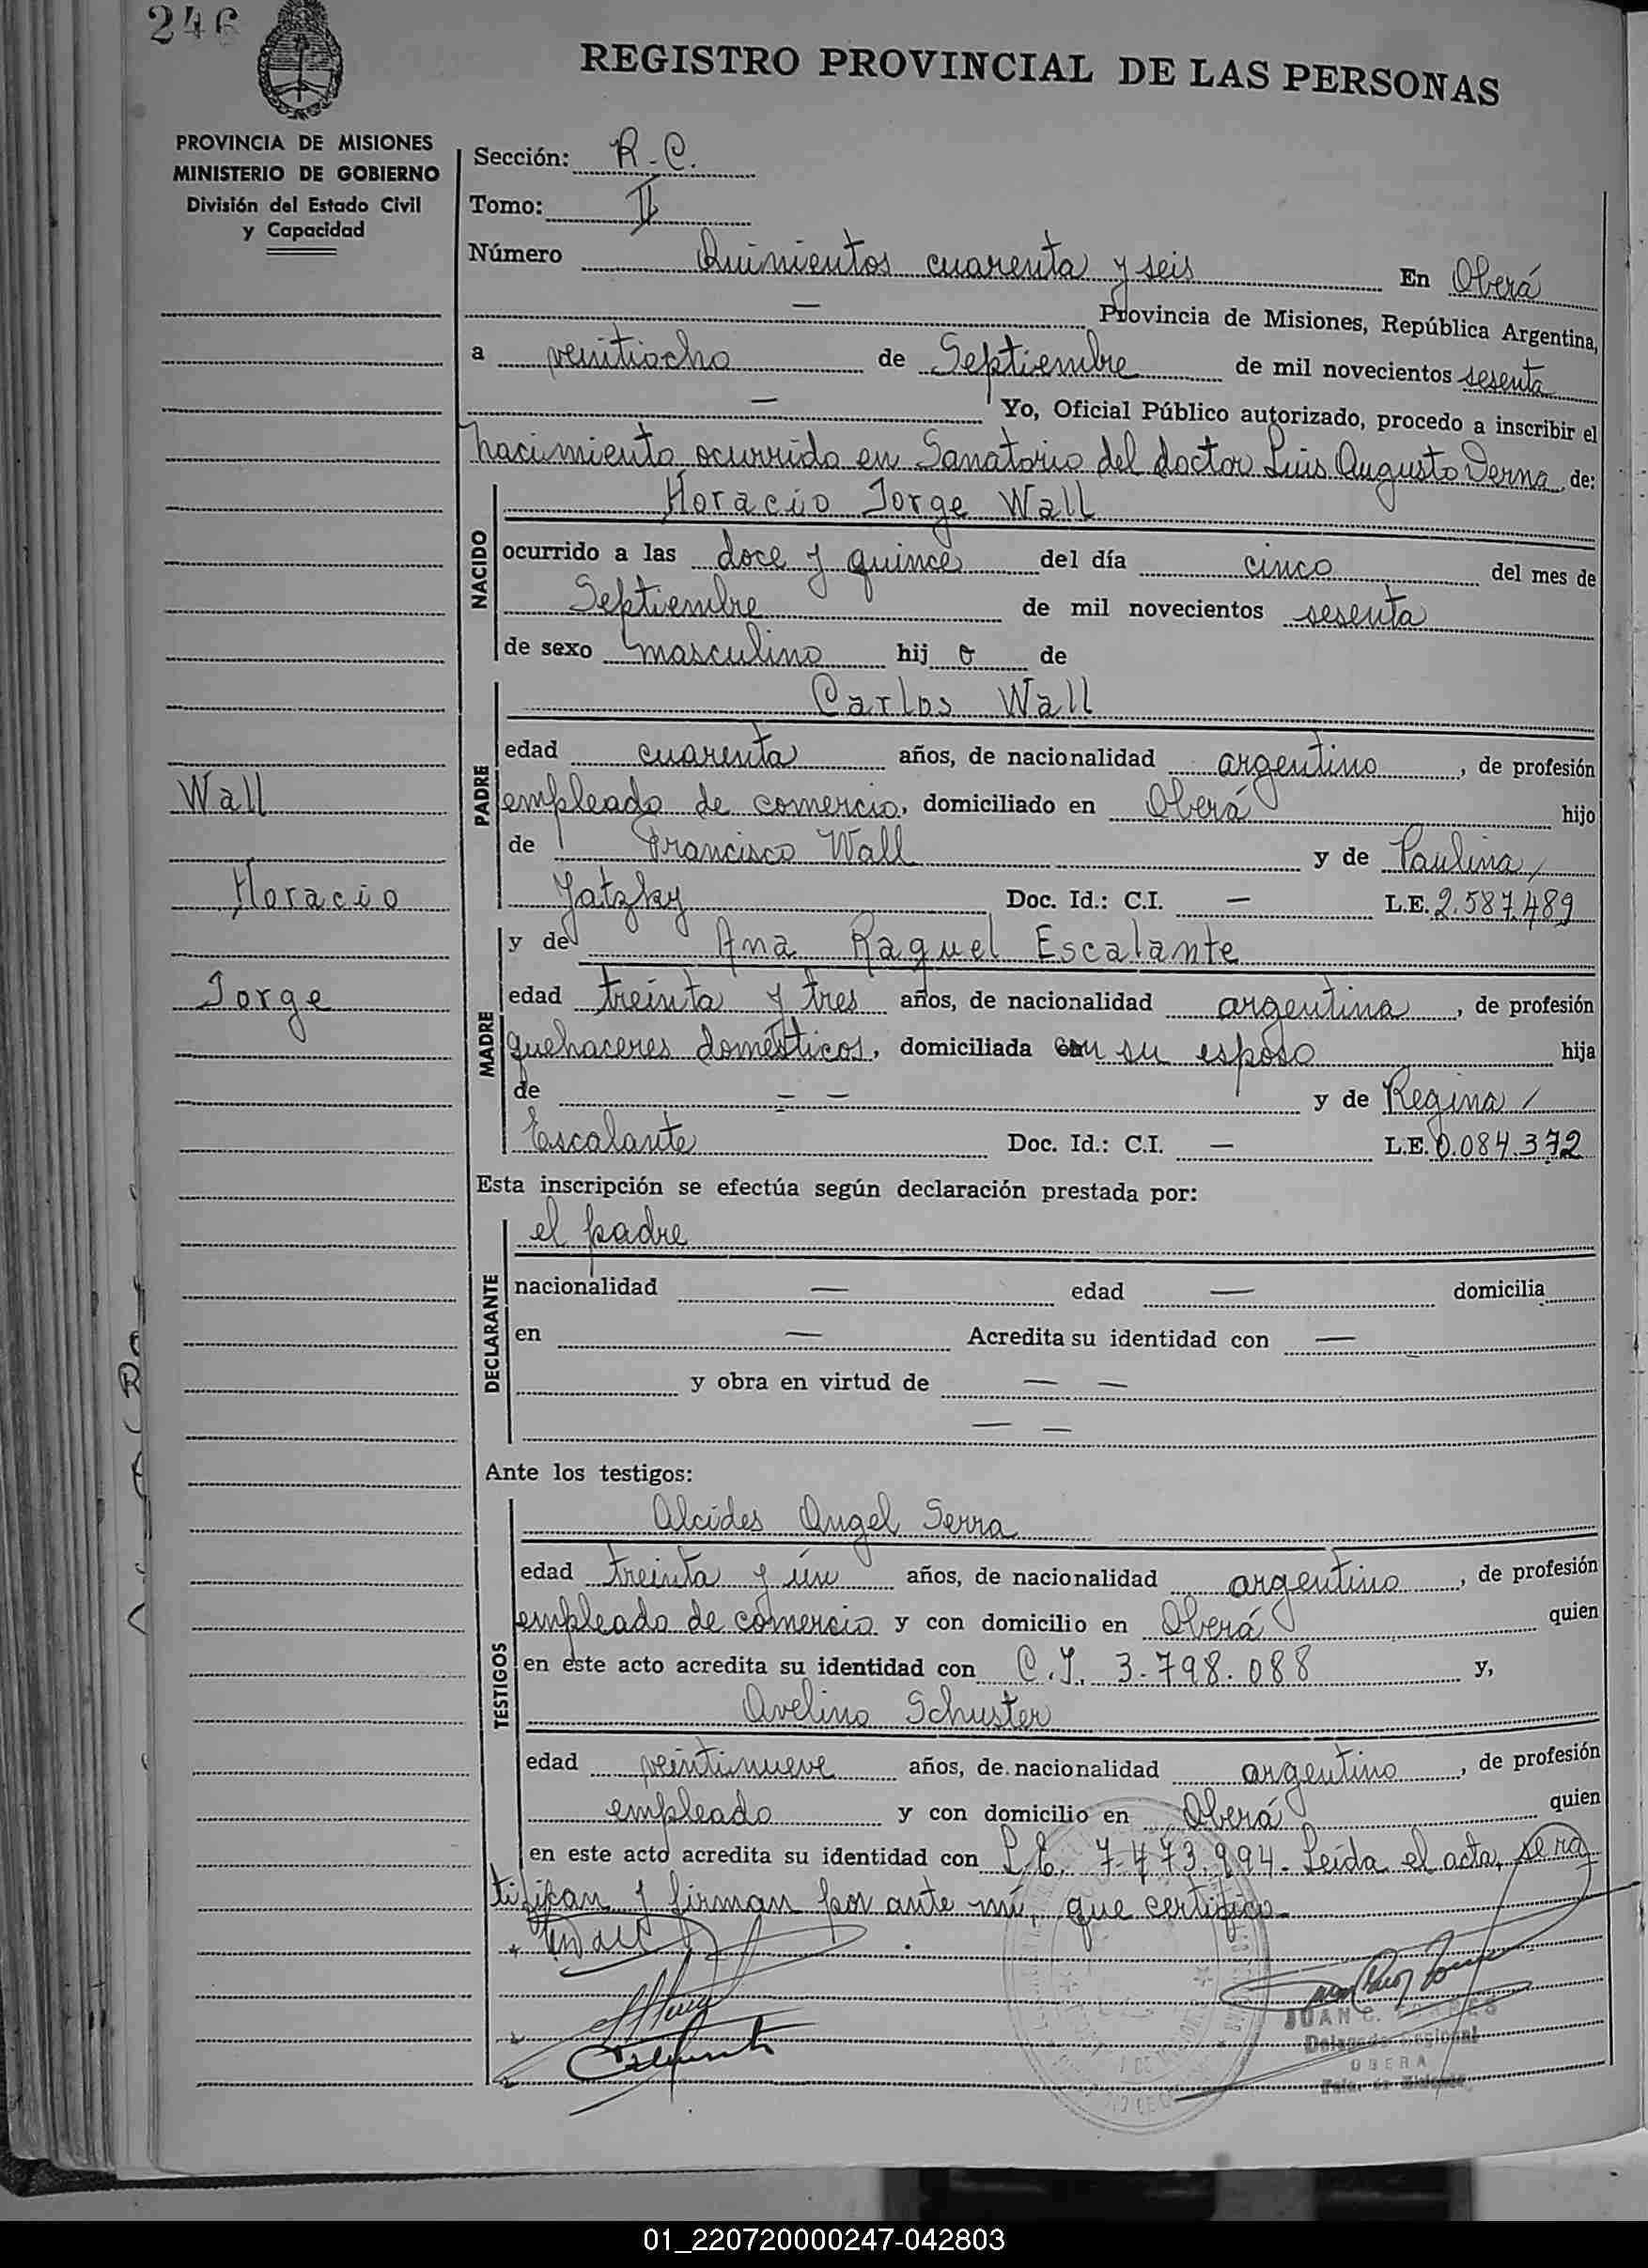 246
REGISTRO PROVINCIAL DE LAS PERSONAS
PROVINCIA DE MISIONES
MINISTERIO DE GOBIERNO
División del Estado Civil
y Capacidad
Sección: R.C.
Tomo: II
Número Quinientos cuarenta y seis En Oberá
— Provincia de Misiones, República Argentina,
a veintiocho de Septiembre de mil novecientos sesenta
— Yo, Oficial Público autorizado, procedo a inscribir el
nacimiento ocurrido en Sanatorio del doctor Luis Augusto Derna de:
NACIDO
Horacio Jorge Wall
ocurrido a las doce y quince del día cinco del mes de
Septiembre de mil novecientos sesenta
de sexo masculino hij o de
PADRE
Carlos Wall
edad cuarenta años, de nacionalidad argentino, de profesión
empleado de comercio, domiciliado en Oberá hijo
de Francisco Wall y de Paulina/
Jatzky Doc. Id.: C.I. — L.E. 2.587.489
Wall
Horacio
Jorge
MADRE
y de Ana Raquel Escalante
edad treinta y tres años, de nacionalidad argentina, de profesión
quehaceres domésticos, domiciliada con su esposo hija
de — — y de Regina/
Escalante Doc. Id.: C.I. — L.E. 0.084.372
Esta inscripción se efectúa según declaración prestada por:
DECLARANTE
el padre
nacionalidad — edad — domicilia
en — Acredita su identidad con —
y obra en virtud de — —
— —
Ante los testigos:
TESTIGOS
Alcides Angel Serra
edad treinta y ún años, de nacionalidad argentino, de profesión
empleado de comercio y con domicilio en Oberá quien
en este acto acredita su identidad con C.I. 3.798.088 y,
Avelino Schuster
edad veintinueve años, de nacionalidad argentino, de profesión
empleado y con domicilio en Oberá quien
en este acto acredita su identidad con L.E. 7.473.994. Leída el acta, se ra
tifican y firman por ante mí, que certifico-
JUAN C.
Delegado Regional
OBERA
01_220720000247-042803